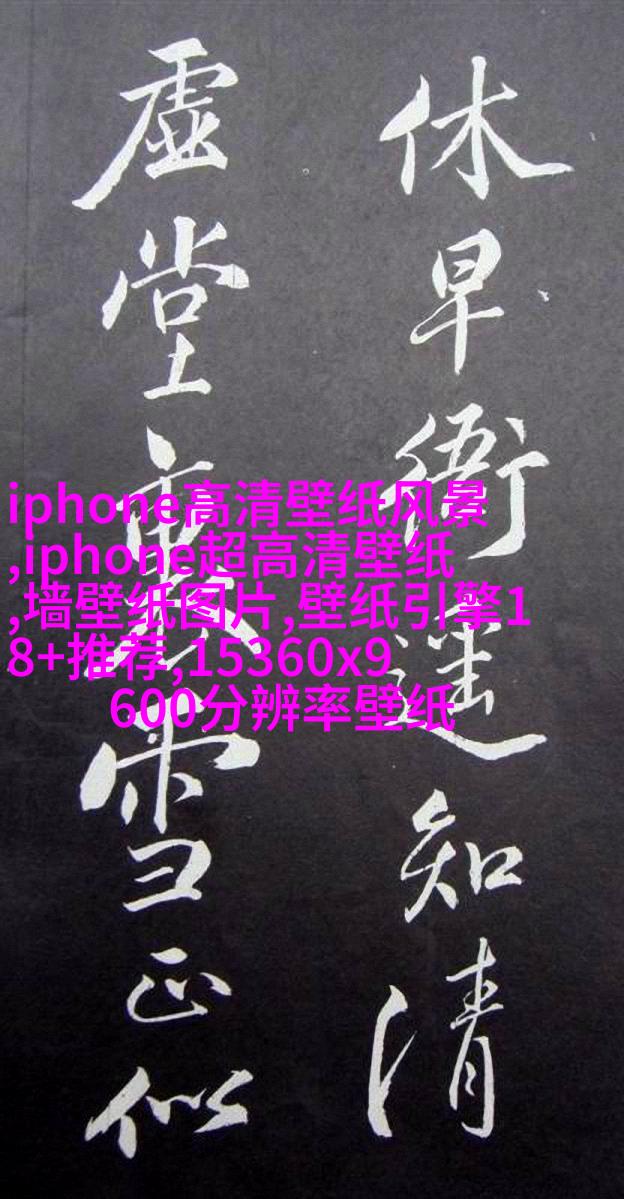 休早衙遥知清
虚堂雪正似
iphone高清壁纸风景
,iphone超高清壁纸
,墙壁纸图片,壁纸引擎1
8+推荐,15360x9
600分辨率壁纸